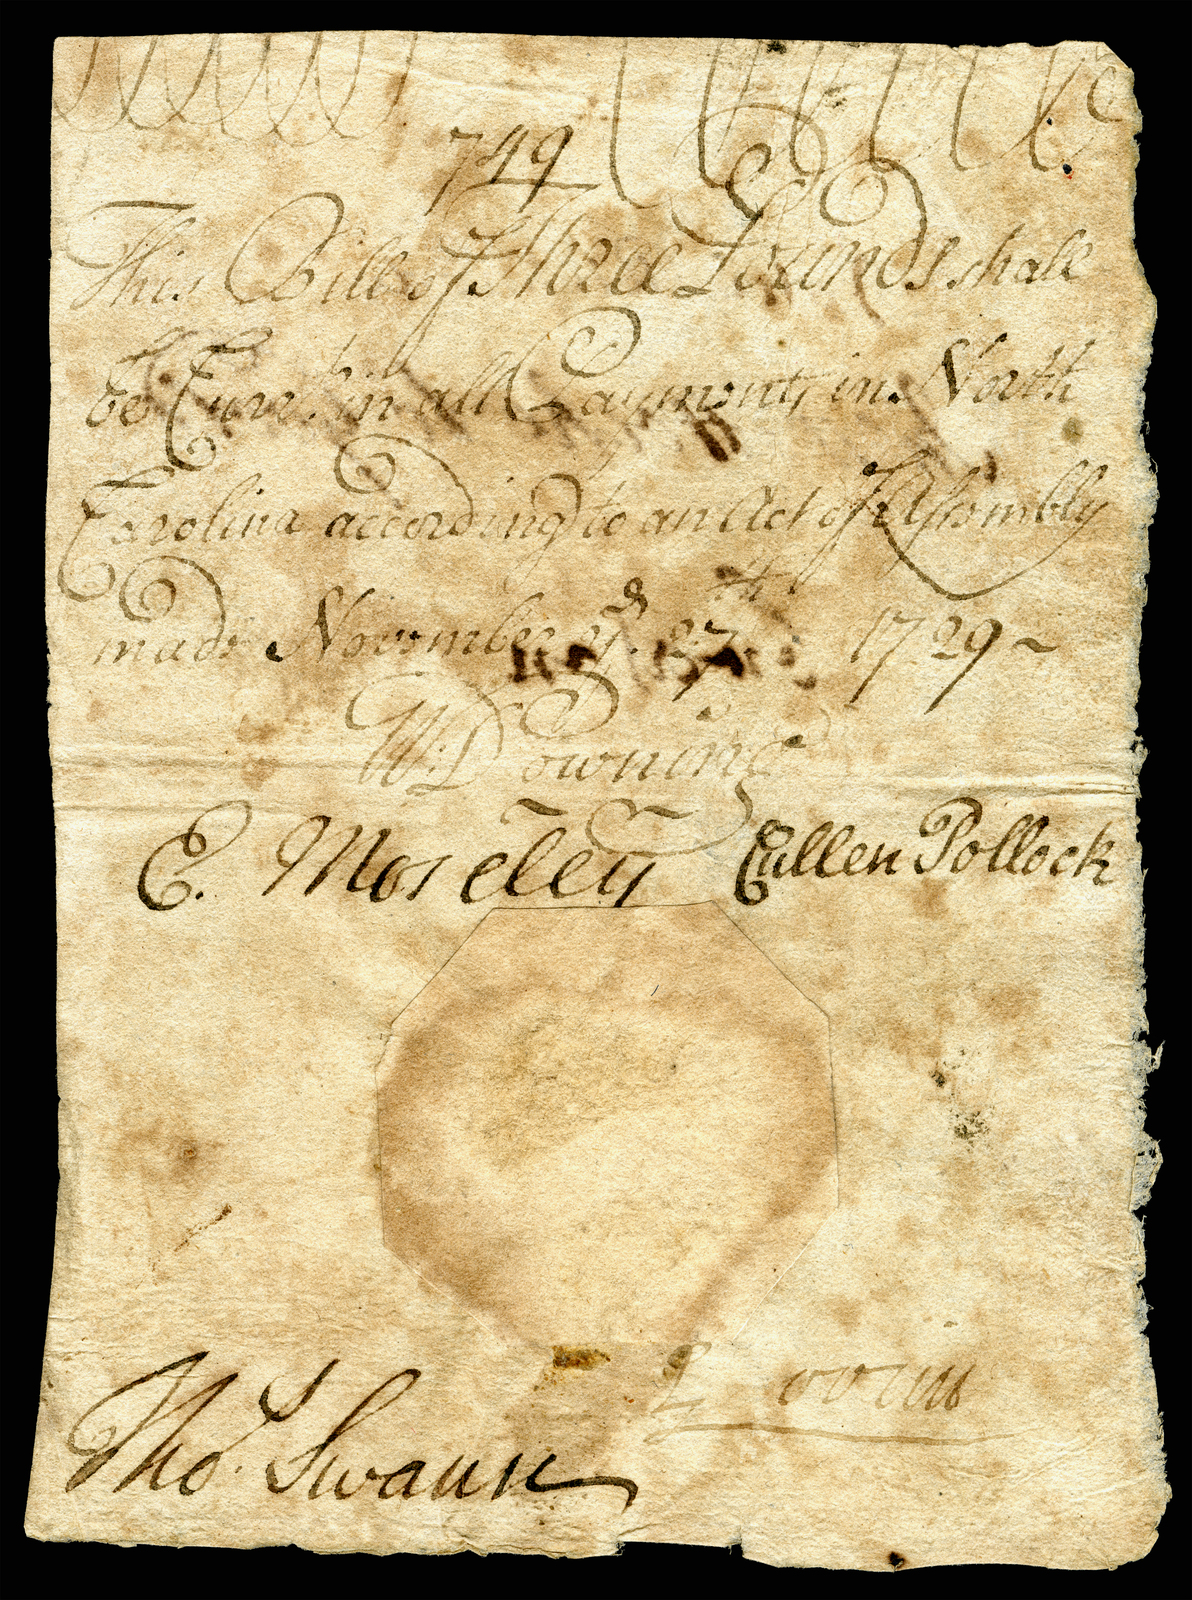 749
This Bill of Three Pounds shall
be Curr.t in all Payments in North
Carolina according to an Act of Assembly
made November ye. 27th 1729~
W. Downing
E. Moseley Cullen Pollock
Tho.s Swann